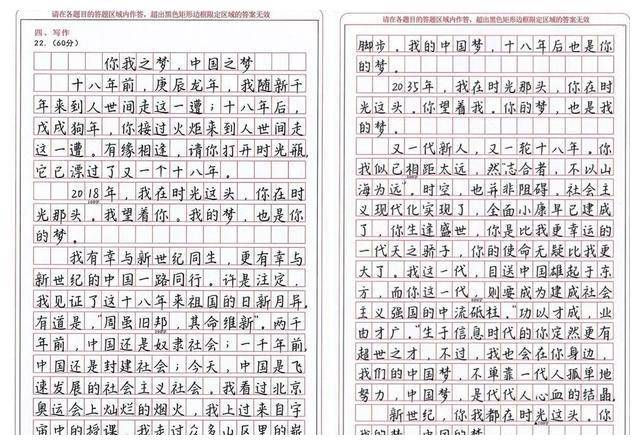 请在各题目的答题区域内作答，超出黑色矩形边框限定区域的答案无效
四、写作
22.（60分）
你我之梦，中国之梦
十八年前，庚辰龙年，我随新千
年来到人世间走这一遭；十八年后，
戊戌狗年，你接过火炬来到人世间走
这一遭。有缘相逢，请你打开时光瓶，
它已漂过了又一个十八年。
2018年，我在时光这头，你在时
光那头。我望着你。我的梦，也是你
的梦。
我有幸与新世纪同生，更有幸与
新世纪的中国一路同行。许是注定，
我见证了这十八年来祖国的日新月异。
有道是，“周虽旧邦，其命维新”。两千
年前，中国还是奴隶社会；一千年前，
中国还是封建社会；今天，中国是飞
速发展的社会主义社会，我看过北京
奥运会上灿烂的烟火，我上过来自宇
宙中的授课，我走过众多山区里的崭
请在各题目的答题区域内作答，超出黑色矩形边框限定区域的答案无效
脚步。我的中国梦，十八年后也是你
的梦。
2035年，我在时光那头，你在时
光这头。你望着我。你的梦，也是我
的梦。
又一代新人，又一轮十八年。你
我似已相距太远，然“志合者，不以山
海为远”。时空，也并非阻碍。社会主
义现代化实现了，全面小康早已建成
了，你生逢盛世，你是比我更幸运的
一代天之骄子，你的使命无疑比我更
大了。我这一代，目送中国雄起于东
方，而你这一代，则要成为建成社会
主义强国的中流砥柱。“功以才成，业
由才广。”生于信息时代的你定然更有
超世之才，不过，我也会在你身边，
我们的中国梦，不单靠一代人孤单地
努力，中国梦，是代代人心血的结晶。
新世纪，你我都在时光这头，你